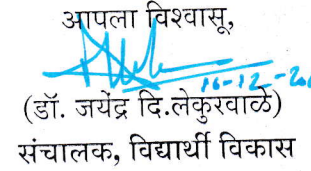 आपला विश्वासू,
16-12-20
(डॉ. जयेंद्र दि.लेकुरवाळे)
संचालक, विद्यार्थी विकास